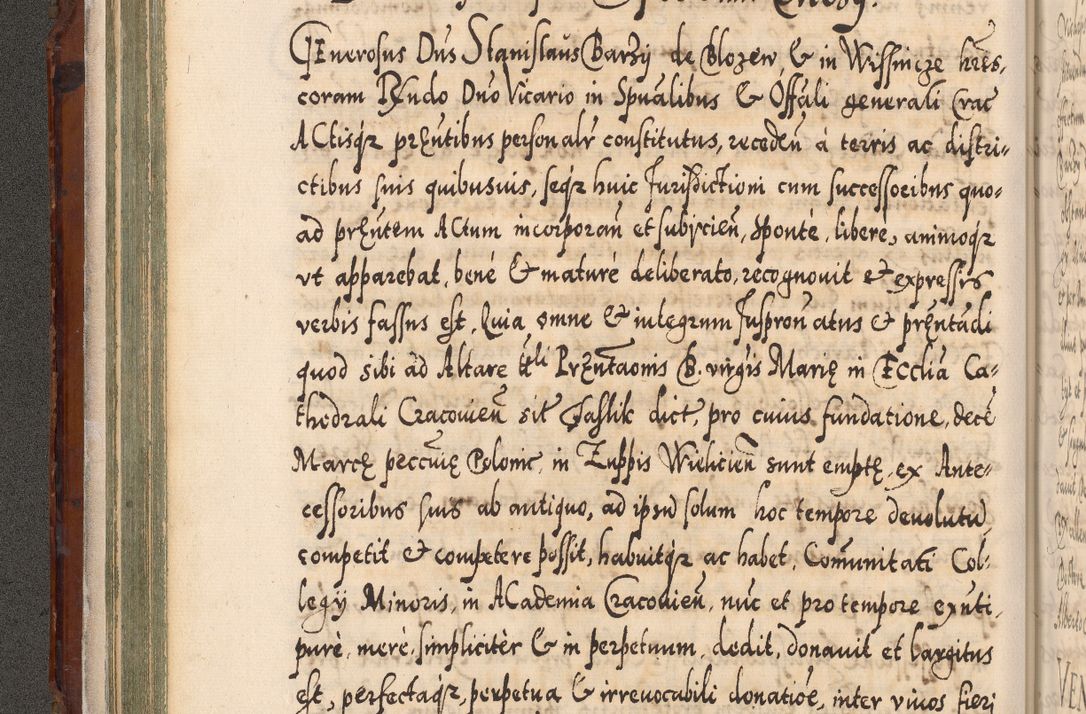 GEnerosus Dūs Stanislaus Barzij de Blozew, & in Wissnicze hæres,
coram R̃ndo Dn̄o Vicario in Spūalibus & Offāli generali Crac̄
ACtisq̃ præn̄tibus personalr̄ constitutus, recedēn à terris ac distri-
ctibus suis quibusuis, seq̃ huic Jurisdictioni cum successoribus quo-
ad præn̄tem ACtum incorporan̄ et subijcien̄, sponte, liberè, animoq̃
vt apparebat, benè & maturè deliberato, recognouit & expressis
verbis fassus est, Quia omne & integrum Juspron̄atus & præn̄tādi
quod sibi ad Altare ttli Præn̄taōnis B. virgīs Mariæ in Ecclīa Ca-
thedrali Cracouien̄ sit Jaslik dict, pro cuius fundatione, decē
Marcæ peccūiæ Polonic, in Zuppis Wielicien̄ sunt emptæ, ex Ante-
cessoribus suis ab antiquo, ad ipsū solum hoc tempore deuolutū,
competit & competere possit, habuitq̃ ac habet, Com̄unitati Col-
legij Minoris, in ACademia Cracouien̄, nūc et pro tempore exn̄ti,
purè, merè, simplicitèr & in perpetuum, dedit, donauit et largitus
est, perfectaq̃, perpetua & irreuocabili donatiōe, inter viuos fieri